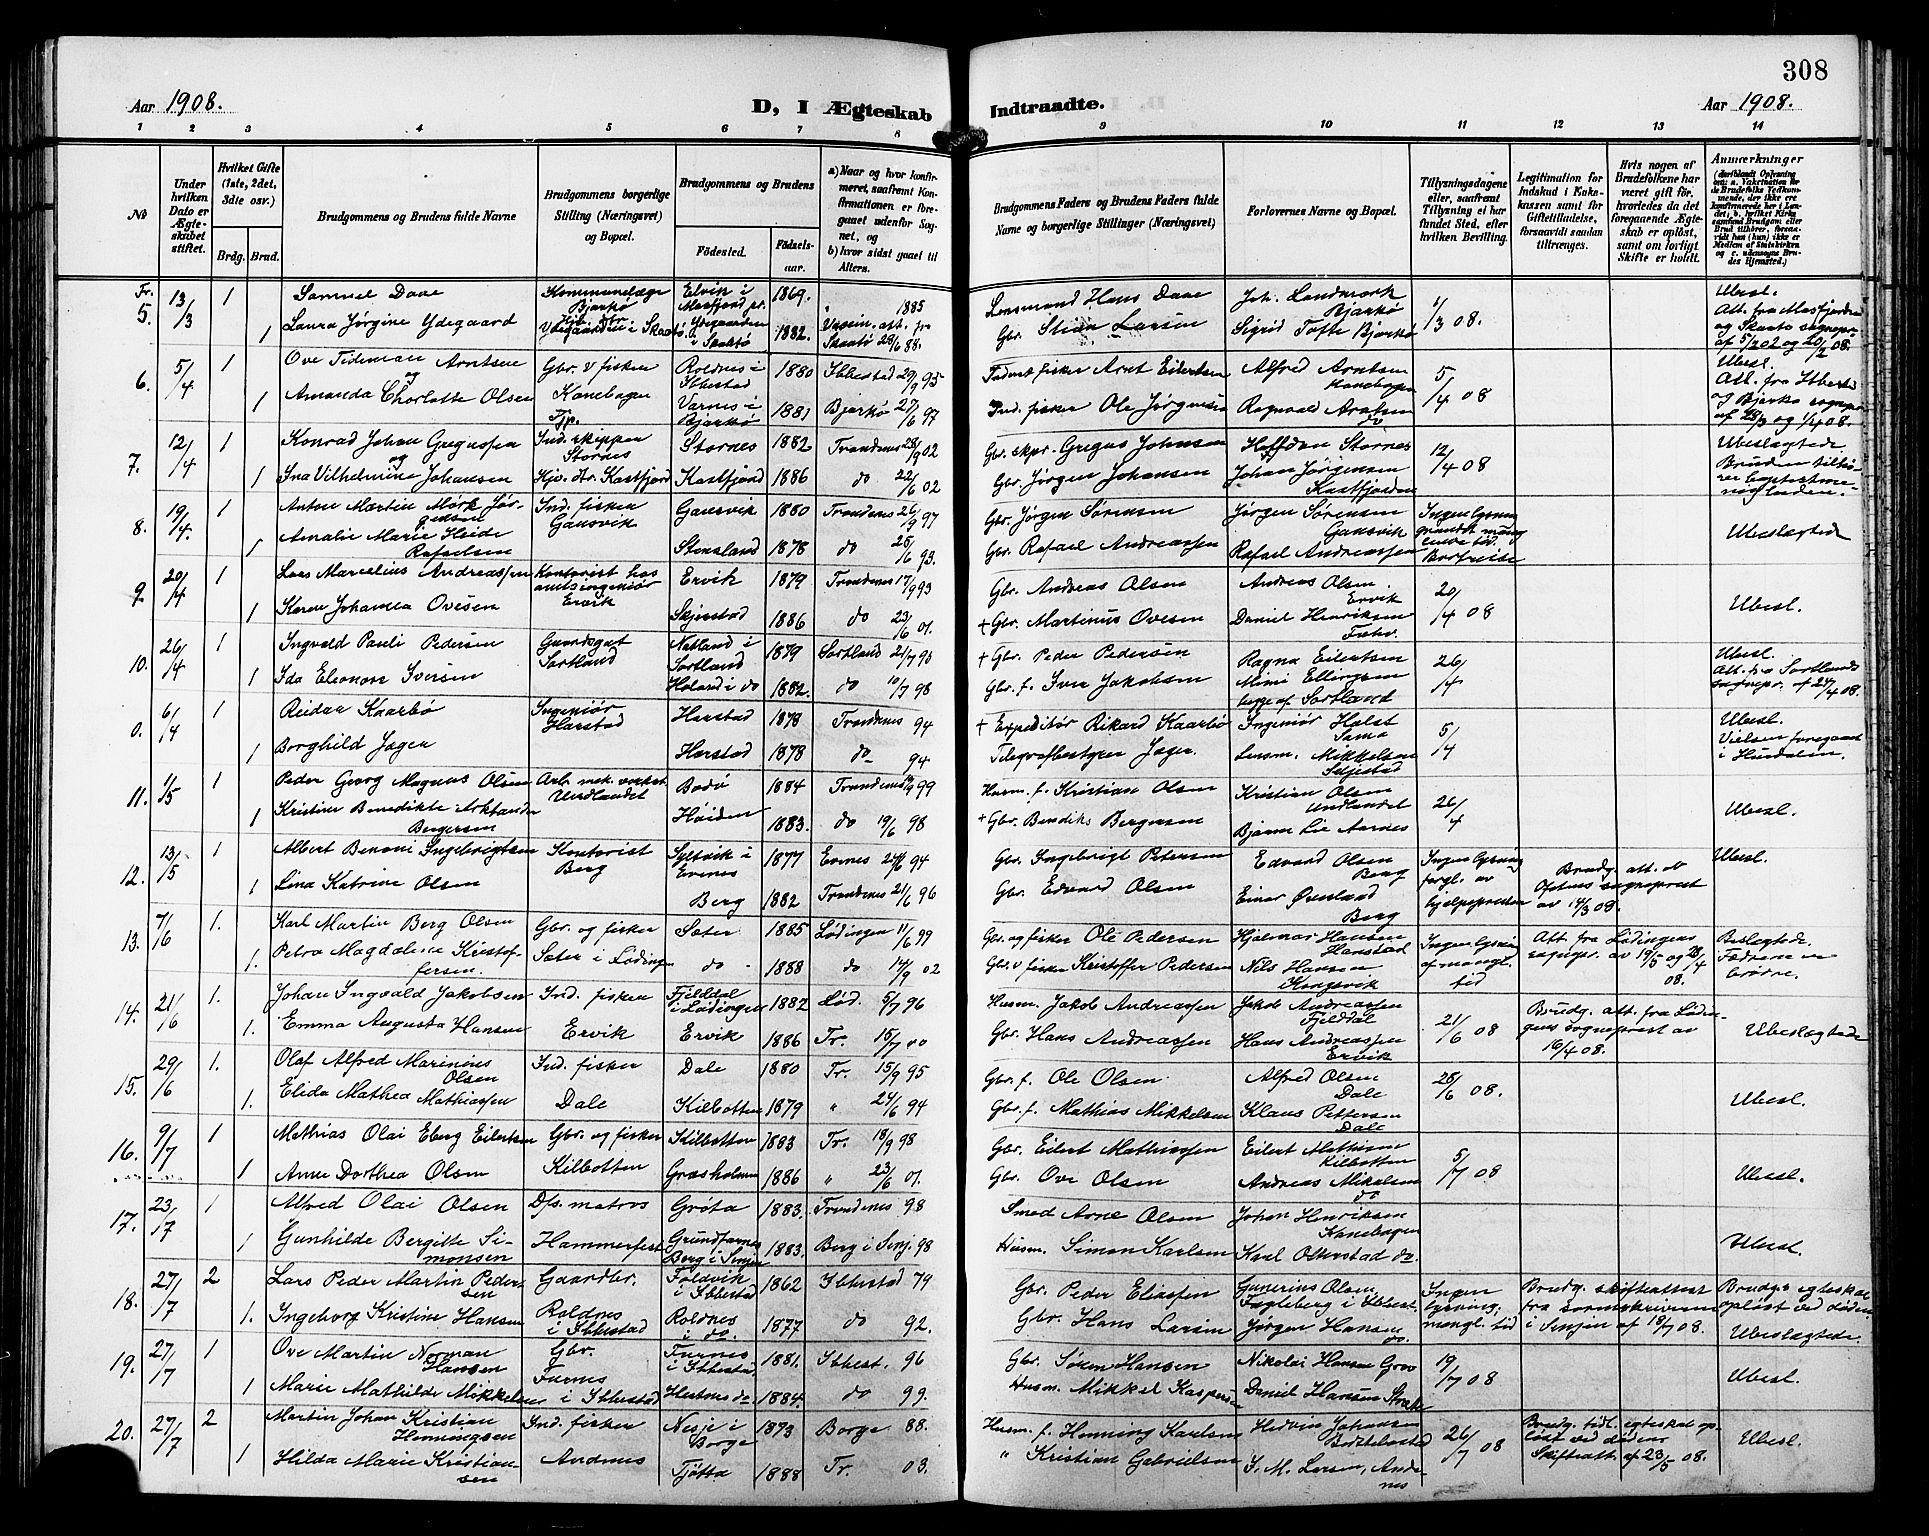 308
Aar 1908.
D, I Ægteskab Indtraadte.
Aar 1908.
1 2 3 4 5 6 7 8 9 10 11 12 13 14
No
Under hvilken Dato er Ægteskabet stiftet.
Hvilket Gifte (1ste, 2det, 3die osv.)
Brdg. Brud.
Brudgommens og Brudens fulde Navne
Brudgommens borgerlige Stilling (Næringsvei) og Bopæl.
Brudgommens og Brudens
Födested.
Födselsaar.
a) Naar og hvor konfirmeret, saafremt Konfirmationen er foregaaet udenfor Sognet, og
b) hvor sidst gaaet til Alters.
Brudgommens Faders og Brudens Faders fulde Navne og borgerlige Stillinger (Næringsvei)
Forlovernes Navne og Bopæl.
Tillysningsdagene eller, saafremt Tillysning ei har fundet Sted, efter hvilken Bevilling.
Legitimation for Indskud i Enkekassen samt for Giftetilladelse, forsaavidt saadan tiltrænges.
Hvis nogen af Brudefolkene har været gift för, hvorledes da det foregaaende Ægteskab er oplöst, samt om lovligt Skifte er holdt.
Anmærkninger
Fr. 5. 13/3 1 Samuel Daae Kommunelæge Bjarkø Elvik i Masfjord pr. 1869. " 1885 Lensmand Hans Daae Joh. Landmark Bjarkø 1/3 08. Ubesl. Att. fra Masfjorden
1 Laura Jørgine Ydegaard Ydegaarden i Skaatø 1882. Skaatø 28/6 88. Gbr. Stian Larsen Sigrid Tofte Bjarkø og Skaatø sognepr. af 5/2 02 og 20/2 08.
6. 5/4 1 Ove Tideman Arntsen og Gbr. & fisker Roldnes i Ibbestad 1880 Ibbestad 29/9 95 fisker Arnt Eilertsen Alfred Arntsen Kanebogen 5/4 08 Ubesl. Att. fra Ibbest.
1 Amanda Charlotte Olsen Kanebogen Varnes i Bjarkø 1881 Bjarkø 27/6 97 Ind. fisker Ole Jørgensen Ragnvald Arntsen do og Bjarkø sognepr. af 28/3 og 1/4 08.
7. 12/4 1 Konrad Johan Gregussen og Ind. skipper Stornes Stornes 1882 Trondenes 28/9 02 Gbr. skpr. Gregus Johnsen Halfdan Stornes 12/4 08 Ubeslægtede
1 Ina Vilhelmine Johansen Kastfjord Kastfjord 1886 do 22/6 02 Gbr. Jørgen Johansen Johan Jørgensen Kastfjorden Bruden tilhører baptistmenigheden.
8. 19/4. 1 Anton Martin Mørk Jørgensen Ind. fisker Gansvik Gausvik 1880 Trondenes 26/9 97 Gbr. Jørgen Sørensen Jørgen Sørensen Gansvik Ingen lysning Ubeslægtede
1 Amalie Marie Heide Rafaelsen Stensland 1878 do 25/6 93. Gbr. Rafael Andreassen Rafael Andreassen
9. 20/4 1 Lars Marcelius Andreassen Kontorist hos amtsingeniør Ervik Ervik 1879 Trondenes 17/9 93 Gbr. Andreas Olsen Andreas Olsen Ervik 20/4 08 Ubesl.
1 Karen Johanna Ovesen Skjerstad 1886 do 23/6 01. + Gbr. Martinus Ovesen Daniel Henriksen
10. 26/4 1 Ingvald Pauli Pedersen Gaardsgut Sortland Natland i Sortland 1879 Sortland 21/7 95 + Gbr. Peder Pedersen Ragna Eilertsen 26/4 Ubesl. Att. fra Sortlands
1 Ida Eleonore Iversen Holand i do 1882. do 10/7 98 Gbr. f. Iver Jakobsen Mimi Ellingsen begge af Sortland sognepr. af 24/4 08.
0. 6/4 1 Reidar Kaarbø Ingeniør Harstad Harstad 1878 Trondenes 94 + Expeditør Rikard Kaarbø Ingeniør Holst Sama 5/4 Ubesl. Vielsen foregaaet
1 Borghild Jager Harstad 1878 do 94 Telegrafbestyrer Jager. Lensm. Mikkelsen Seljestad i Hurdalen.
11. 11/5 1 Peder Georg Magnus Olsen Arb. mek. verkst. Undlandet Bodø 1884 Trondenes 99 Husm. f. Kristian Olsen Kristian Olsen Undlandet 26/4 Ubesl.
1 Kristine Benedikte Arktander Bergersen Høiden 1883. do 19/6 98 + Gbr. Bendiks Bergersen Bjarne Lie Aarnes
12. 13/15 1 Albert Benoni Ingebrigtsen Kontorist Berg Syltvik i Evenes 1877 Evenes 94 Gbr. Ingebrigt Petersen Edvard Olsen Berg Ingen lysning Brudg. att. ab Ofotens sogneprest av 14/3 08. Ubesl.
1 Lina Katrine Olsen Berg 1882 Trondenes 21/6 96 Gbr. Edvard Olsen Einar Øvenland Berg
13. 7/16 1. Karl Martin Berg Olsen Gbr. og fisker Sæter 1885 Lødingen 11/6 99 Gbr. og fisker Ole Pedersen Hjalmar Hansen Hanstad Ingen lysning af mangl. tid Att. fra Lødingens sognepr. av 19/5 og 28/4 08. Beslegtede. Fædrene er brødre.
1. Petra Magdalene Kristoffersen. Sæter i Lødingen do 1888 do 14/9 02 Gbr. & fisker Kristoffer Pedersen Nils Hansen Kongsvik
14. 21/6 1. Johan Ingvald Jakobsen Ind. fisker Fjelddal i Lødingen 1882 Lød. 5/7 96 Husm. Jakob Andreassen Jakob Andreassen Fjelddal 21/6 08 Brudg. att. fra Lødingens sogneprest av 16/4 08. Ubeslægtede
1. Emma Augusta Hansen Ervik Ervik 1886 Tr. 15/7 00 Gbr. Hans Andreassen Hans Andreassen Ervik
15. 29/6 1. Olaf Alfred Marinius Olsen Ind. fisker Dale 1880 Tr. 15/9 95 Gbr. f. Ole Olsen Alfred Olsen Dale 25/6 08. Ubesl.
1. Elida Mathea Mathiassen Dale Kilbotten 1879 " 24/6 94 Gbr. f. Mathias Mikkelsen Klaus Pettersen Dale
16. 9/7 1 Mathias Olai Eberg Eilertsen Gbr. og fisker Kilbotten 1883 Tr. 18/9 98 Gbr. Eilert Mathiassen Eilert Mathiassen Kilbotten 5/7 08 Ubesl.
1 Anna Dorthea Olsen Kilbotten Græsholmen 1886 " 23/6 01. Gbr. Ove Olsen Andreas Mikalsen do
17. 23/7 1 Alfred Olai Olsen Dfs. matros Grøta 1883. Trondenes 98 Smed Arne Olsen Johan Henriksen Kanebogen Ubesl.
1 Gunhilde Bergitte Simonsen Hammerfest Berg i Senjen 1883. Berg i Senj. 98 Husm. Simon Karlsen Karl Otterstad do
18. 27/7 2 Lars Peder Martin Pedersen Gaardbr. Foldvik i Ibbestad 1862 Ibbestad 79 Gbr. Peder Eliassen Gunerius Olsen, Fagleberg i Ibbest. Ingen lysning, mangl. tid Brudg. skifteattest fra sorenskriveren i Senjen af 18/7 08. Brudg. egteskab opløst ved døden
1. Ingeborg Kristine Hansen Roldnes i Ibbestad Roldnes i do. 1877 do 92. Gbr. Hans Larsen Jørgen Hansen do. Ubeslægtede.
19. 27/7 1 Ove Martin Norman Hansen Gbr. Furnes Furnes i Ibbestad 1881. Ibbest. 96 Gbr. Søren Hansen Nikolai Hansen Grov 19/7 08 Ubesl.
1 Marie Mathilde Mikkelsen i Ibbestad Hustnes do 1884. do 99. Husm. Mikkel Kaspersen Daniel Hansen
20. 27/7 2 Martin Johan Kristian Henningsen Ind. fisker Nesje i Borge 1873 Borge 88. Husm. f. Henning Karlsen Hedvin Johansen 26/7 08 Brudg. tidl. egteskab opløst ved døden Skifteatt. af 23/5 08. Ubesl.
1 Hilda Marie Kristiansen Andenes Tjøtta 1888 Tr. 03. " Kristian Gabrielsen I. M. Larsen, Andenes